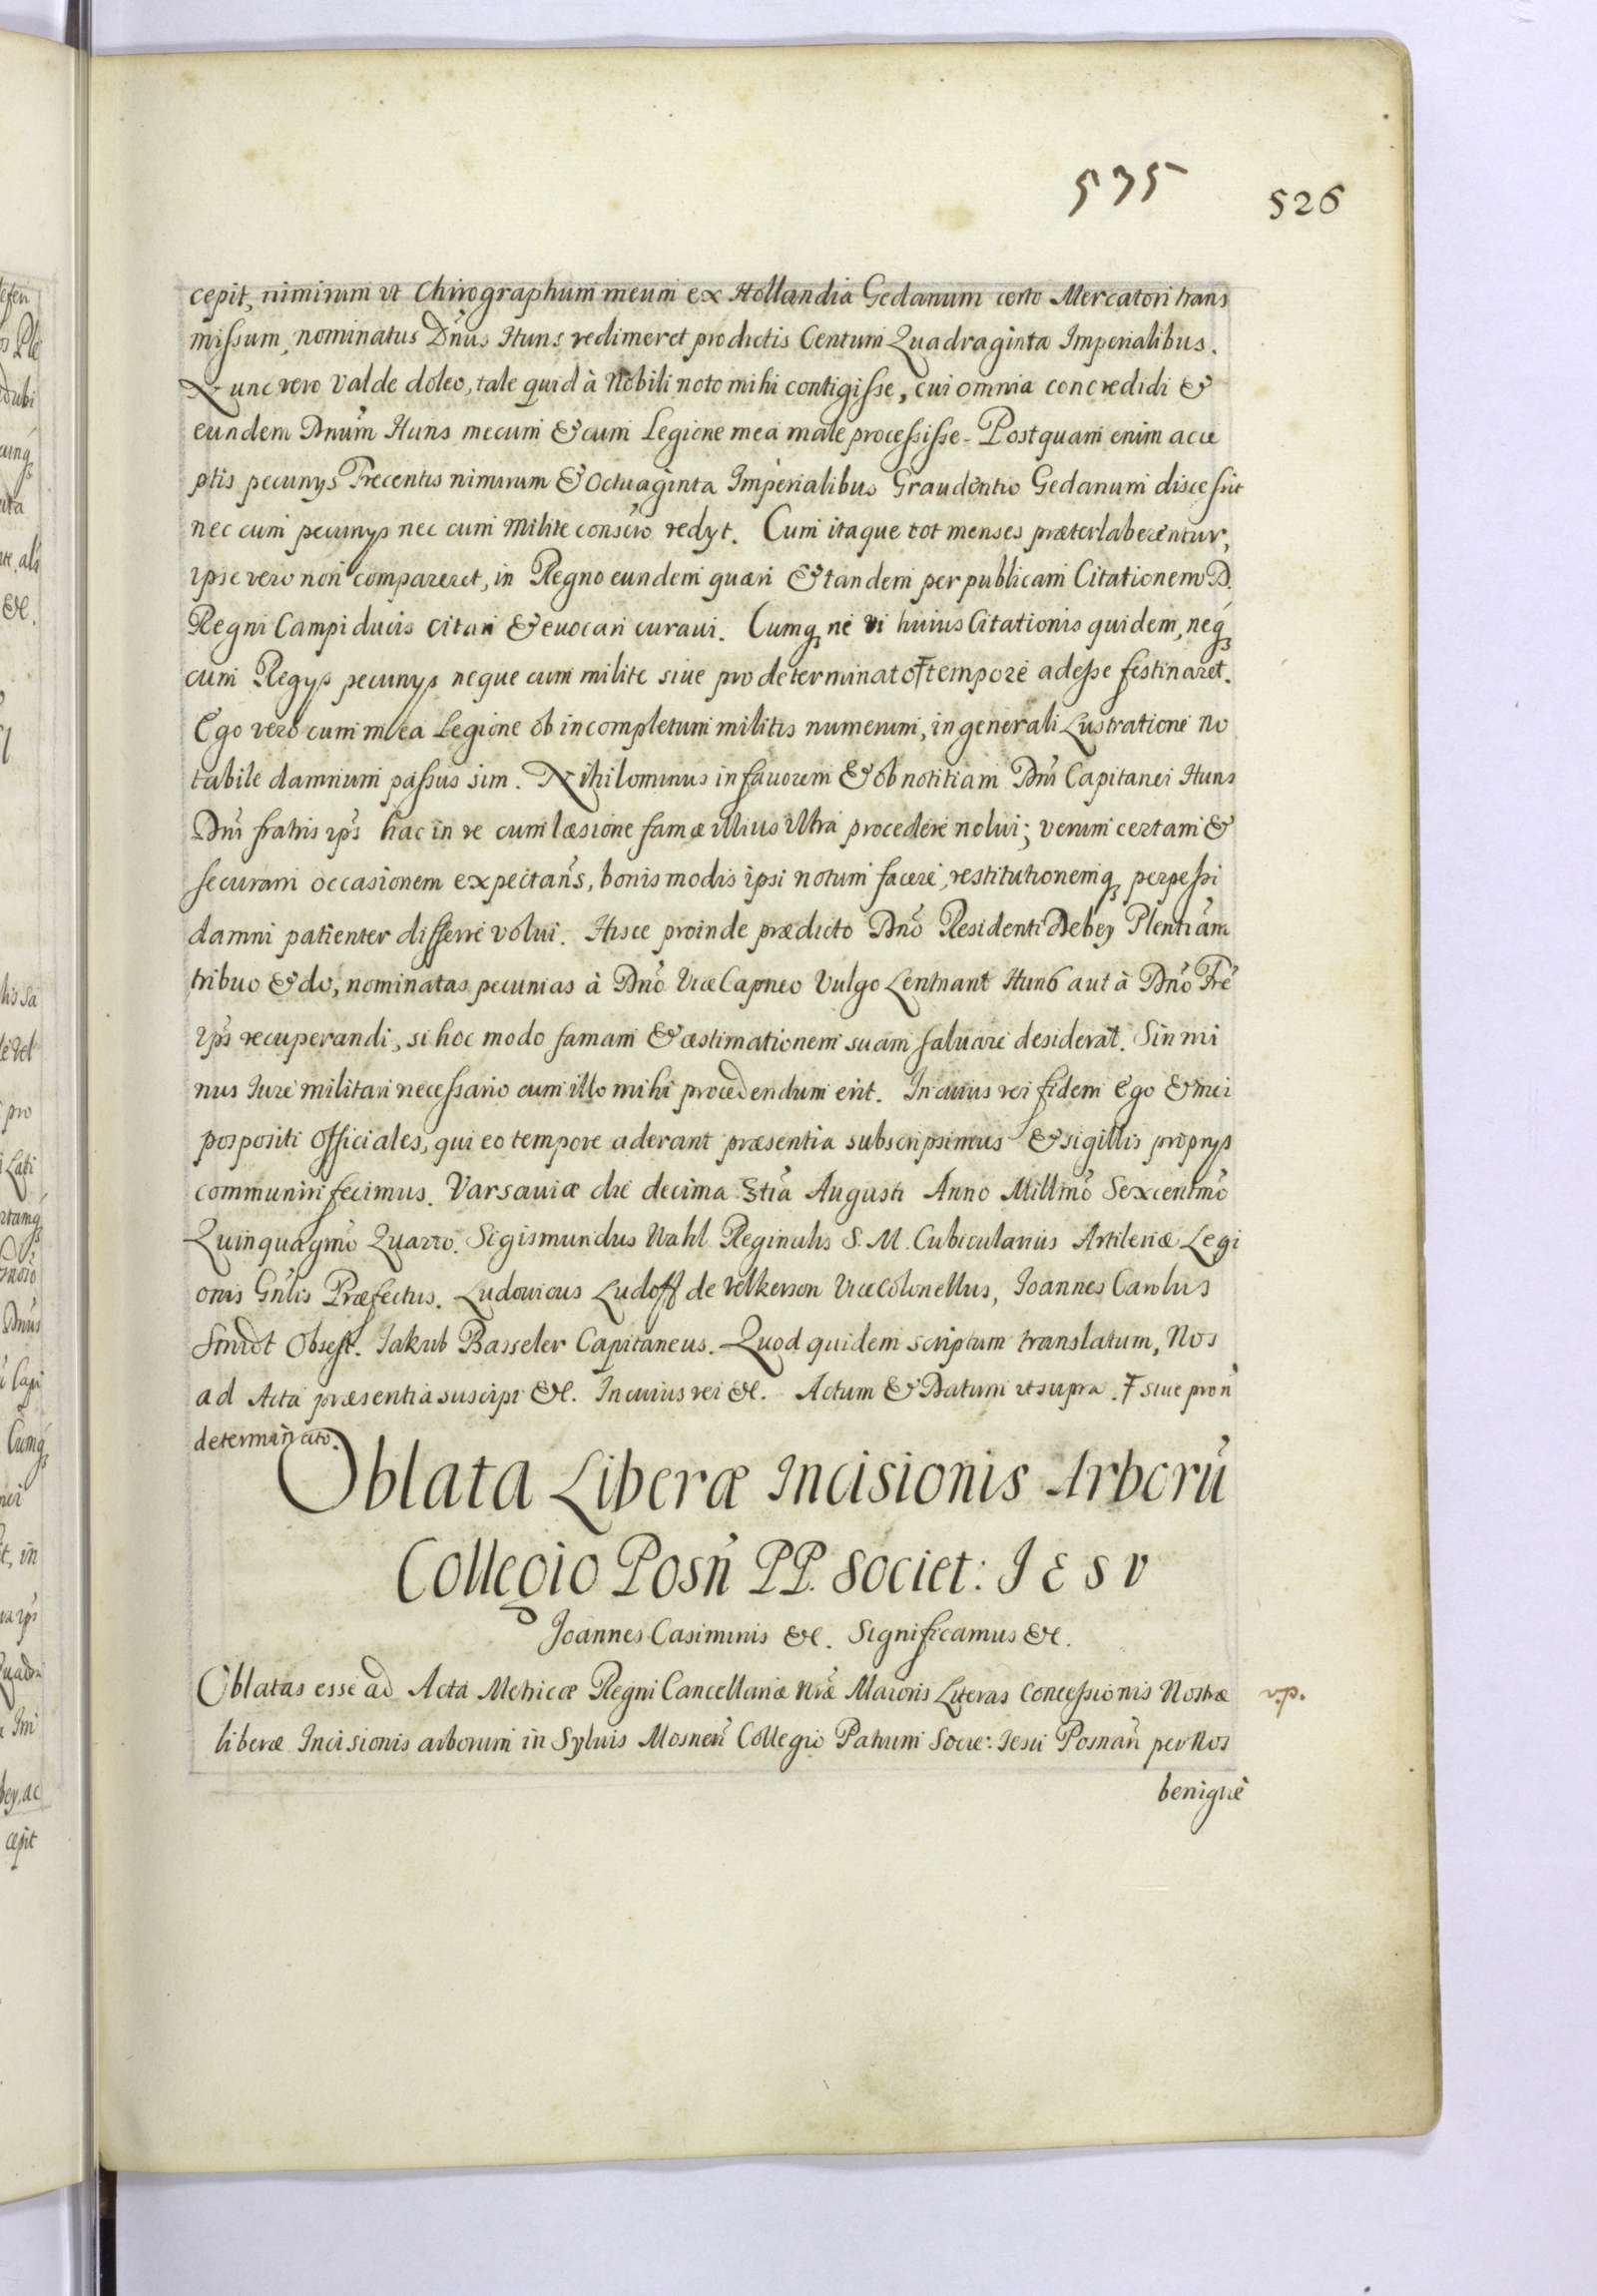 535
526
cepit, nimirum ut Chirographum meum ex Hollandia Gedanum certo Mercatori trans
missum, nominatus Dn̄us Huns redimeret prodictis Centum Quadraginta Imperialibus.
Nunc vero valde doleo, tale quid à Nobili noto mihi contigisse, cui omnia concredidi &
eundem Dnūm Huns mecum & cum Legione mea male processisse. Postquam enim acce
ptis pecunys Trecentis nimirum & Octuaginta Imperialibus Graudentio Gedanum discessit
nec cum pecunys nec cum milite conscio redyt. Cum itaque tot menses præterlaberentur,
ipse vero non compareret, in Regno eundem quæri & tandem per publicam Citationem D.
Regni Campiducis citari & euocari curaui. Cumq ne vi huius Citationis quidem, neq
cum Regys pecunys neque cum milite siue pro determinato Ŧ tempore adesse festinaret.
Ego vero cum mea Legione ob incompletum militis numerum, in generali Lustratione no
tabile damnum passus sim. Nihilominus in fauorem & ob notitiam Dn̄i Capitanei Huns
Dn̄i fratris ip̄s hac in re cum læsione famæ illius ultra procedere nolui; verum certam &
securam occasionem expectans, bonis modis ipsi notum facere, restitutionemq perpessi
damni patienter differre volui. Hisce proinde prædicto Dn̄o Residenti Debey Plenti ām
tribuo & do, nominatas pecunias à Dn̄o Vice Capneo Vulgo Lentnant Huns aut à Dn̄o Frē
ip̄s recuperandi, si hoc modo famam & æstimationem suam saluare desiderat. Sin mi
nus Iure militari necessario cum illo mihi procedendum erit. In cuius rei fidem Ego & mei
pospositi Officiales, qui eo tempore aderant præsentia subscripsimus & sigillis proprys
communiri fecimus. Varsauiæ die decima 3tia Augusti Anno Millmō Sexcentmō
Quinquagmō Quarto. Sigismundus Wahl Reginalis S. M. Cubicularius Artileriæ Legi
onis Gn̄lis Præfectus. Ludouicus Ludoff de Velkerson Vice Colonellus, Joannes Carolus
Smidt Obsest. Jakub Basseler Capitaneus. Quod quidem scriptum translatum, Nos
ad Acta præsentia suscipi &c. In cuius rei &c. Actum & Datum ut supra. Ŧ siue pro n̄
determinato.
Oblata Liberæ Incisionis Arborū
Collegio Posn̄ PP. Societ: JESV
Joannes Casimirus &c. Significamus &c.
Oblatas esse ad Acta Metricæ Regni Cancellariæ Nr̄æ Maioris Literas Concessionis Nostræ
v.p.
liberæ Incisionis arborum in Syluis Mosnen̄ Collegio Patrum Socie: Iesu Posnan̄ per Nos
benignè